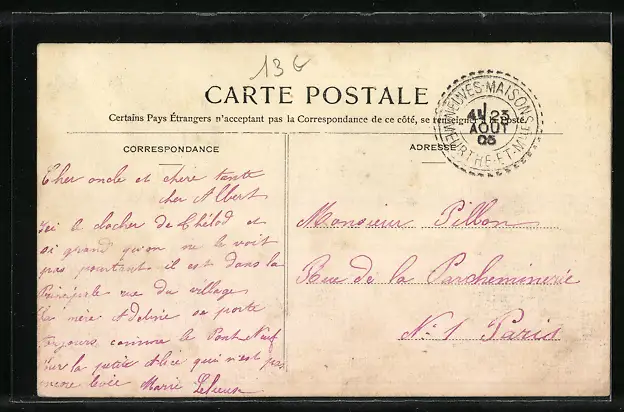 13 G
CARTE POSTALE
Certains Pays Étrangers n'acceptant pas la Correspondance de ce côté, se renseigner à la Poste.
CORRESPONDANCE
Cher oncle et chère tante
cher Albert
Ici le clocher de Thélod et
si grand qu'on ne le voit
pas pourtant il est dans la
Principale rue du village
La mère Adeline se porte
toujours comme le Pont Neuf
Sur la petite Alice qui n'est pas
encore levée Marie
ADRESSE
NEUVES-MAISONS
23
AOUT
05
MEURTHE-ET-MLLE
Monsieur Pillon
Rue de la Parcheminerie
N° 1 Paris